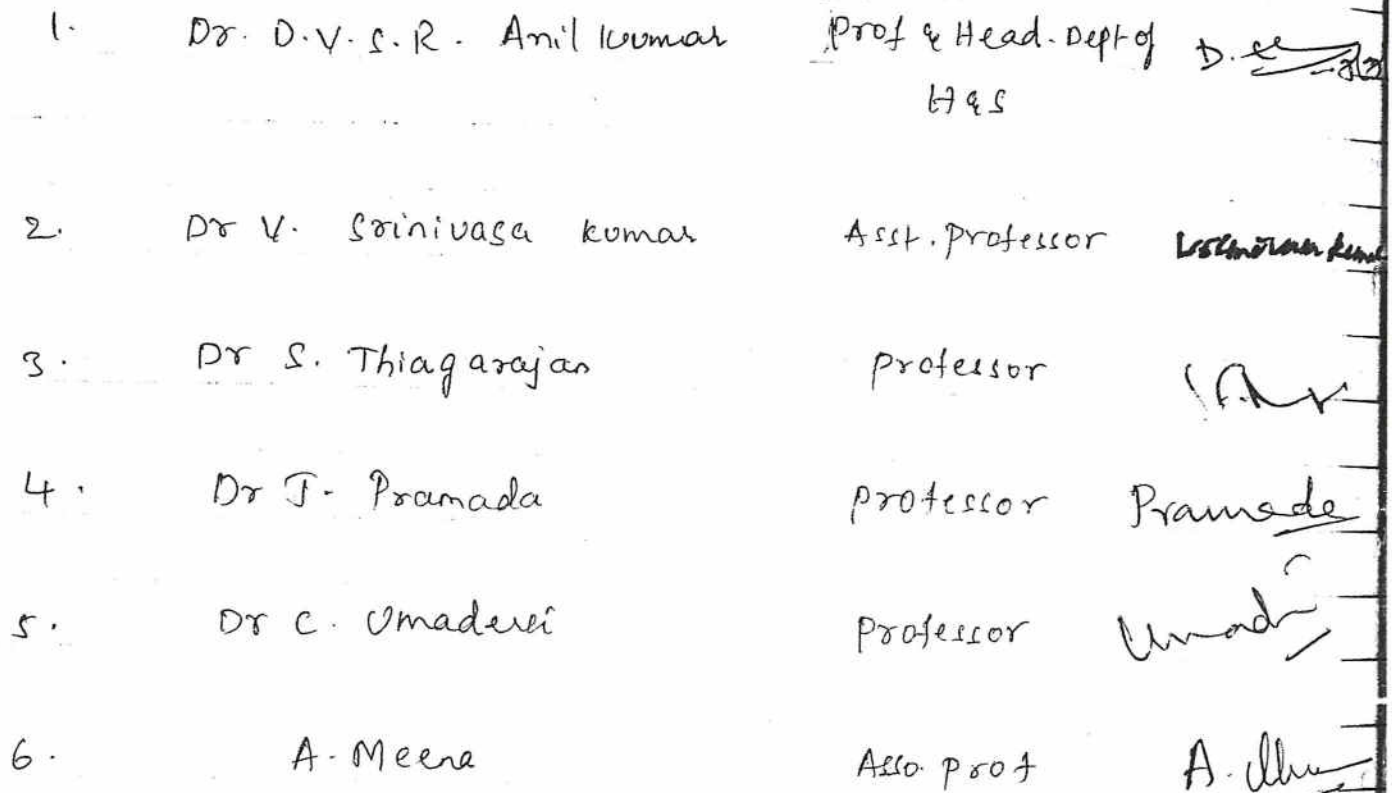 1. Dr. D.V.S.R. Anil kumar Prof & Head. Dept of
H & S
2. Dr V. Srinivasa kumar Asst. Professor
3. Dr S. Thiagarajan professor
4. Dr J. Pramada professor Pramada
5. Dr C. Umadevi professor Umadi
6. A. Meena Asso. prof A.